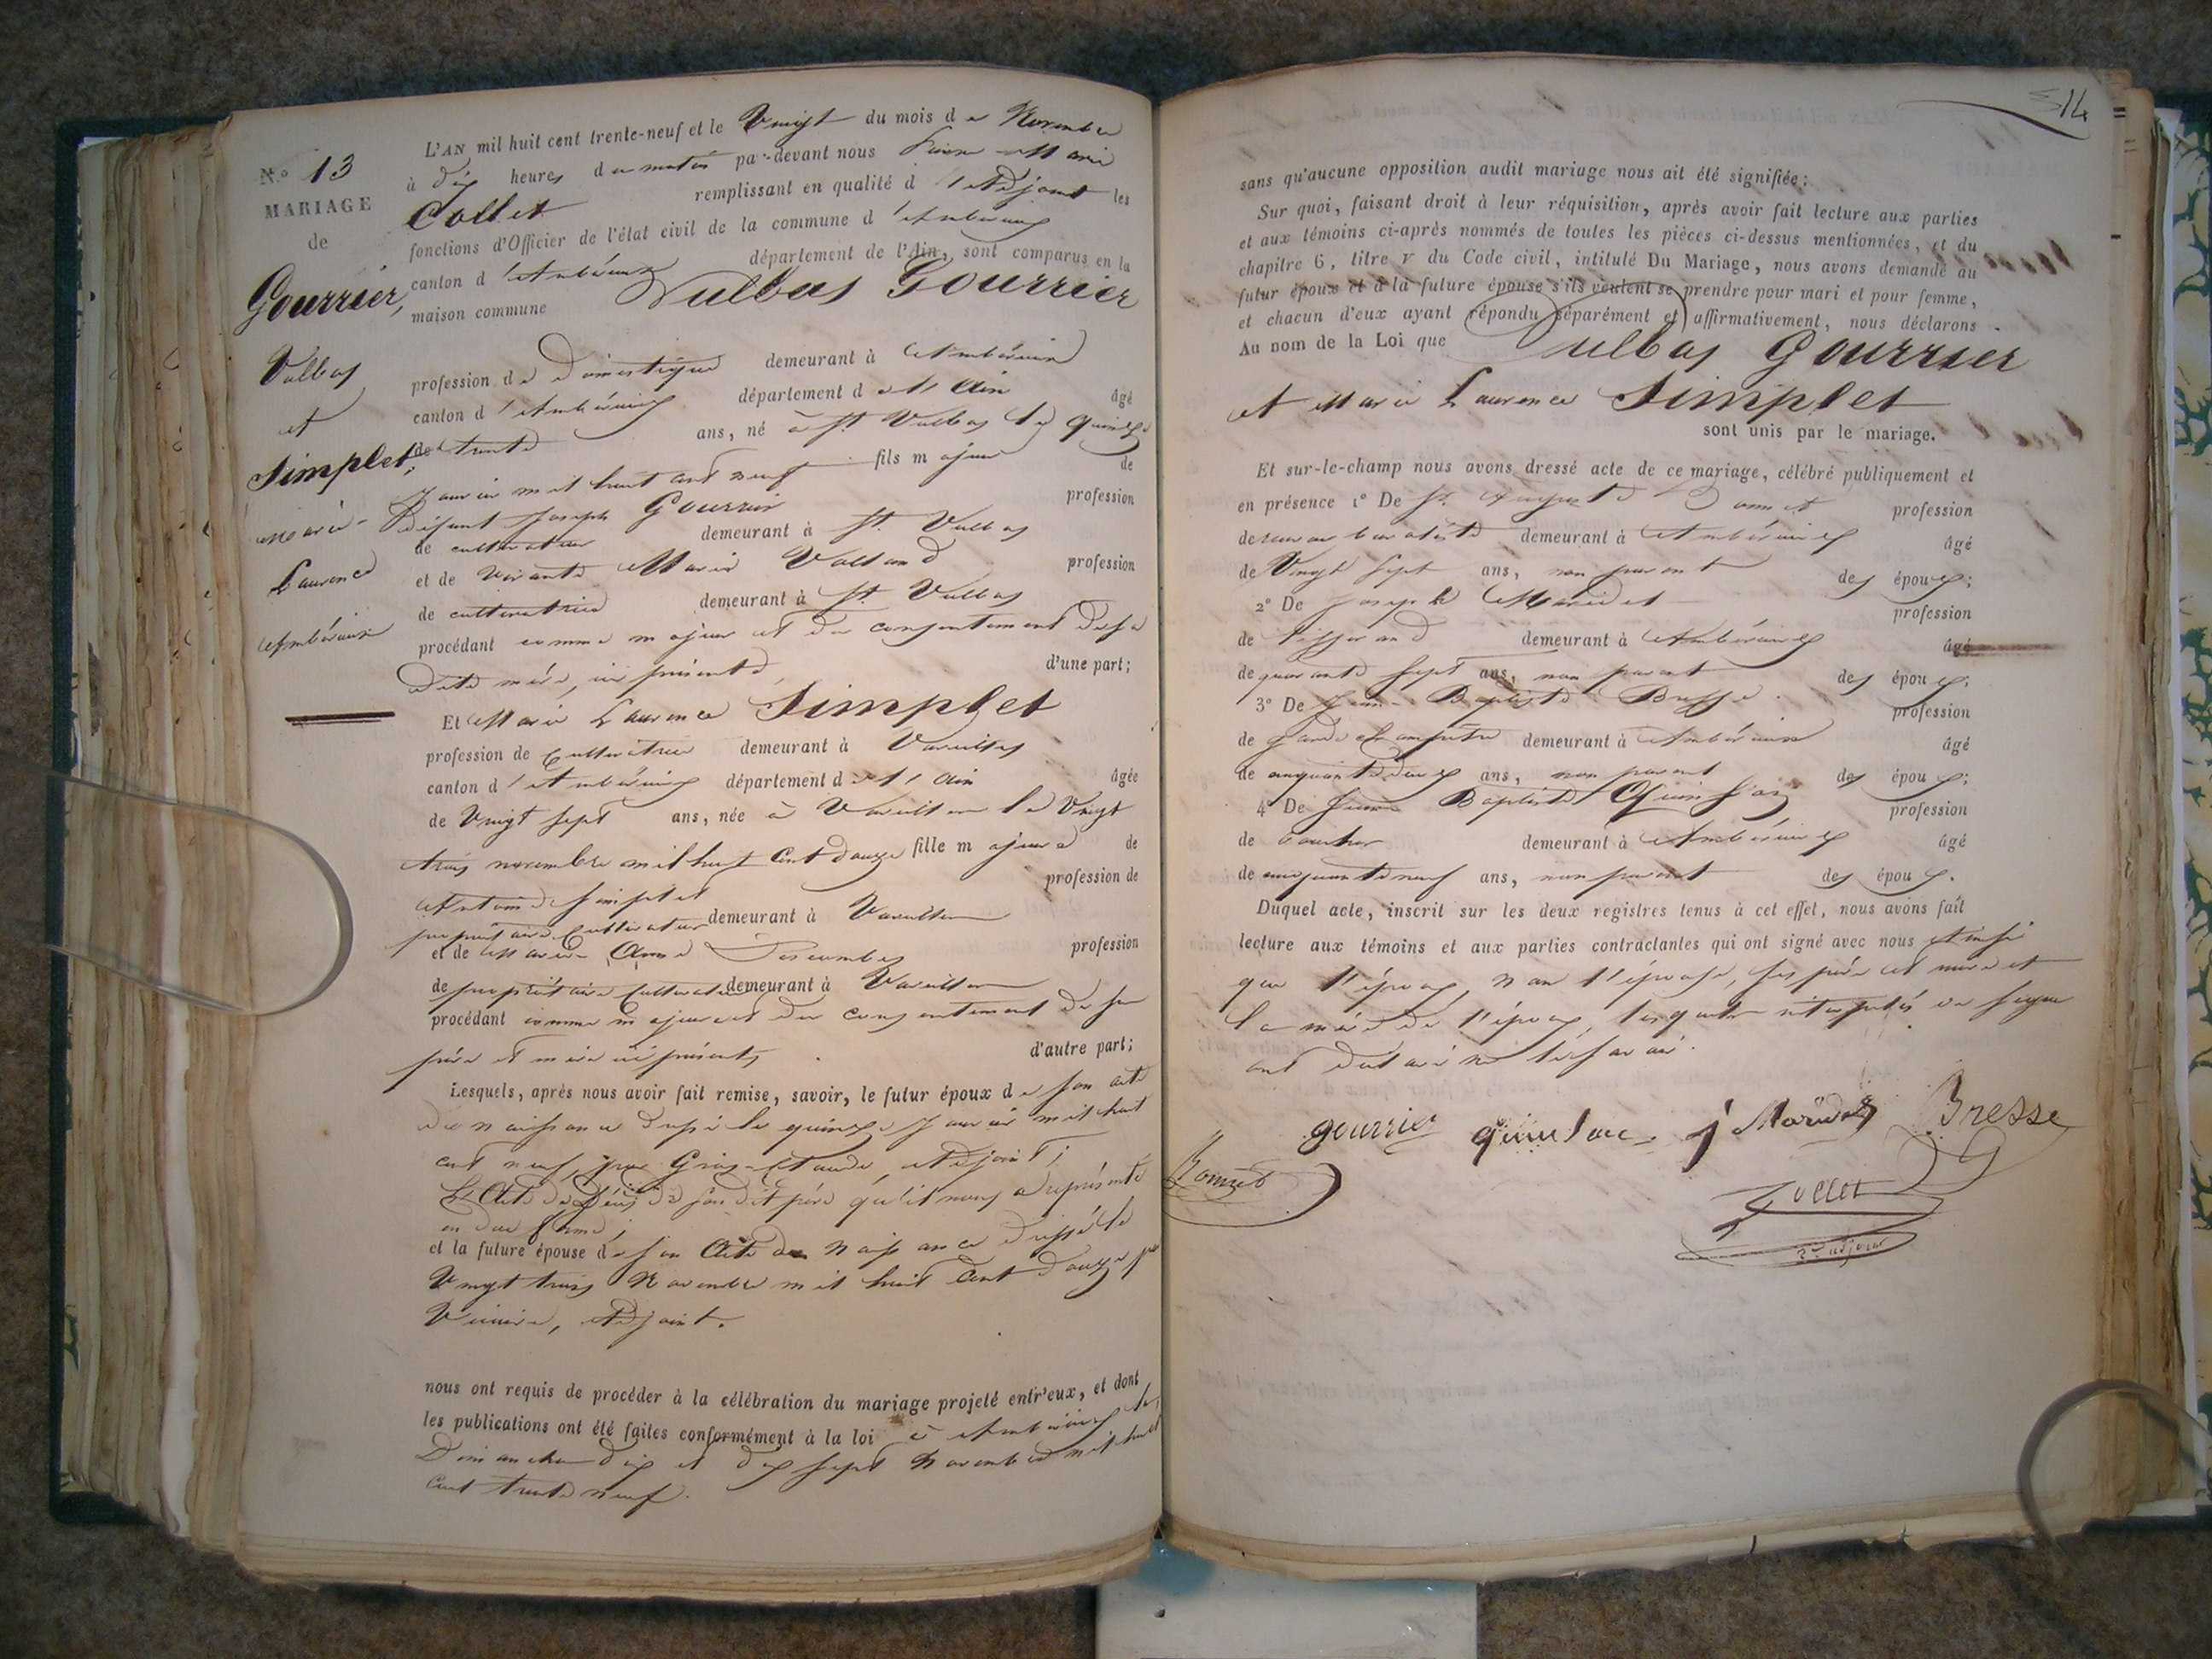 N.º 13
MARIAGE
de
Gourrier,
Vulbas
et
Simplet,
Marie-
Laurence
Ambérieux
L'AN mil huit cent trente-neuf et le Vingt du mois de Novembre
à dix heures du matin par-devant nous Pierre Marie
Collet remplissant en qualité d'Adjoint les
fonctions d'Officier de l'état civil de la commune d'Ambérieux
canton d'Ambérieux département de l'Ain, sont comparus en la
maison commune Vulbas Gourrier
profession de Domestique demeurant à Ambérieux
canton d'Ambérieux département de l'Ain âgé
de trente ans, né à St. Vulbas le quinze
Janvier mil huit cent neuf fils majeur de
Défunt Joseph Gourrier profession
de cultivateur demeurant à St. Vulbas
et de vivante Marie Volland profession
de cultivatrice demeurant à St. Vulbas
procédant comme majeur et du consentement de sa
dite mère, ici présente, d'une part;
Et Marie Laurence Simplet
profession de Cultivatrice demeurant à Vareilles
canton d'Ambérieux département de l'Ain âgée
de Vingt sept ans, née à Vareilles le Vingt
trois novembre mil huit Cent douze fille majeure de
Antoine Simplet profession de
propriétaire Cultivateur demeurant à Vareilles
et de Marie Anne profession
de propriétaire Cultivatrice demeurant à Vareilles
procédant comme majeure et du consentement de ses
père et mère ici présents, d'autre part;
Lesquels, après nous avoir fait remise, savoir, le futur époux de son acte
de naissance dressé le quinze Janvier mil huit
cent neuf, par Gros-Claude, Adjoint;
L'Acte de Décès de son dit père qu'il nous a représenté
en due forme;
et la future épouse de son Acte de Naissance dressé le
Vingt trois Novembre mil huit Cent douze par
Adjoint.
nous ont requis de procéder à la célébration du mariage projeté entr'eux, et dont
les publications ont été faites conformément à la loi à Ambérieux les
Dimanches dix et dix sept Novembre mil huit
Cent trente neuf.
514
sans qu'aucune opposition audit mariage nous ait été signifiée;
Sur quoi, faisant droit à leur réquisition, après avoir fait lecture aux parties
et aux témoins ci-après nommés de toutes les pièces ci-dessus mentionnées, et du
chapitre 6, titre V du Code civil, intitulé Du Mariage, nous avons demandé au
futur époux et à la future épouse s'ils veulent se prendre pour mari et pour femme,
et chacun d'eux ayant répondu séparément et affirmativement, nous déclarons
Au nom de la Loi que Vulbas Gourrier
et Marie Laurence Simplet
sont unis par le mariage.
Et sur-le-champ nous avons dressé acte de ce mariage, célébré publiquement et
en présence 1º De Sr. Auguste profession
de demeurant à Ambérieux âgé
de Vingt sept ans, non parent des époux;
2º De Joseph Maridet profession
de Tisserand demeurant à Ambérieux âgé
de quarante sept ans, non parent des époux;
3º De Jean-Baptiste Bresse profession
de garde champêtre demeurant à Ambérieux âgé
de cinquante deux ans, non parent des époux;
4º De Jean Baptiste Quinson profession
de demeurant à Ambérieux âgé
de cinquante neuf ans, non parent des époux.
Duquel acte, inscrit sur les deux registres tenus à cet effet, nous avons fait
lecture aux témoins et aux parties contractantes qui ont signé avec nous Ainsi
que l'époux, non l'épouse, ses père et mère et
la mère de l'époux, lesquels interpelés de signer
ont déclaré ne le savoir.
gourrier quinson j Maridet Bresse
Collet
2e adjoint